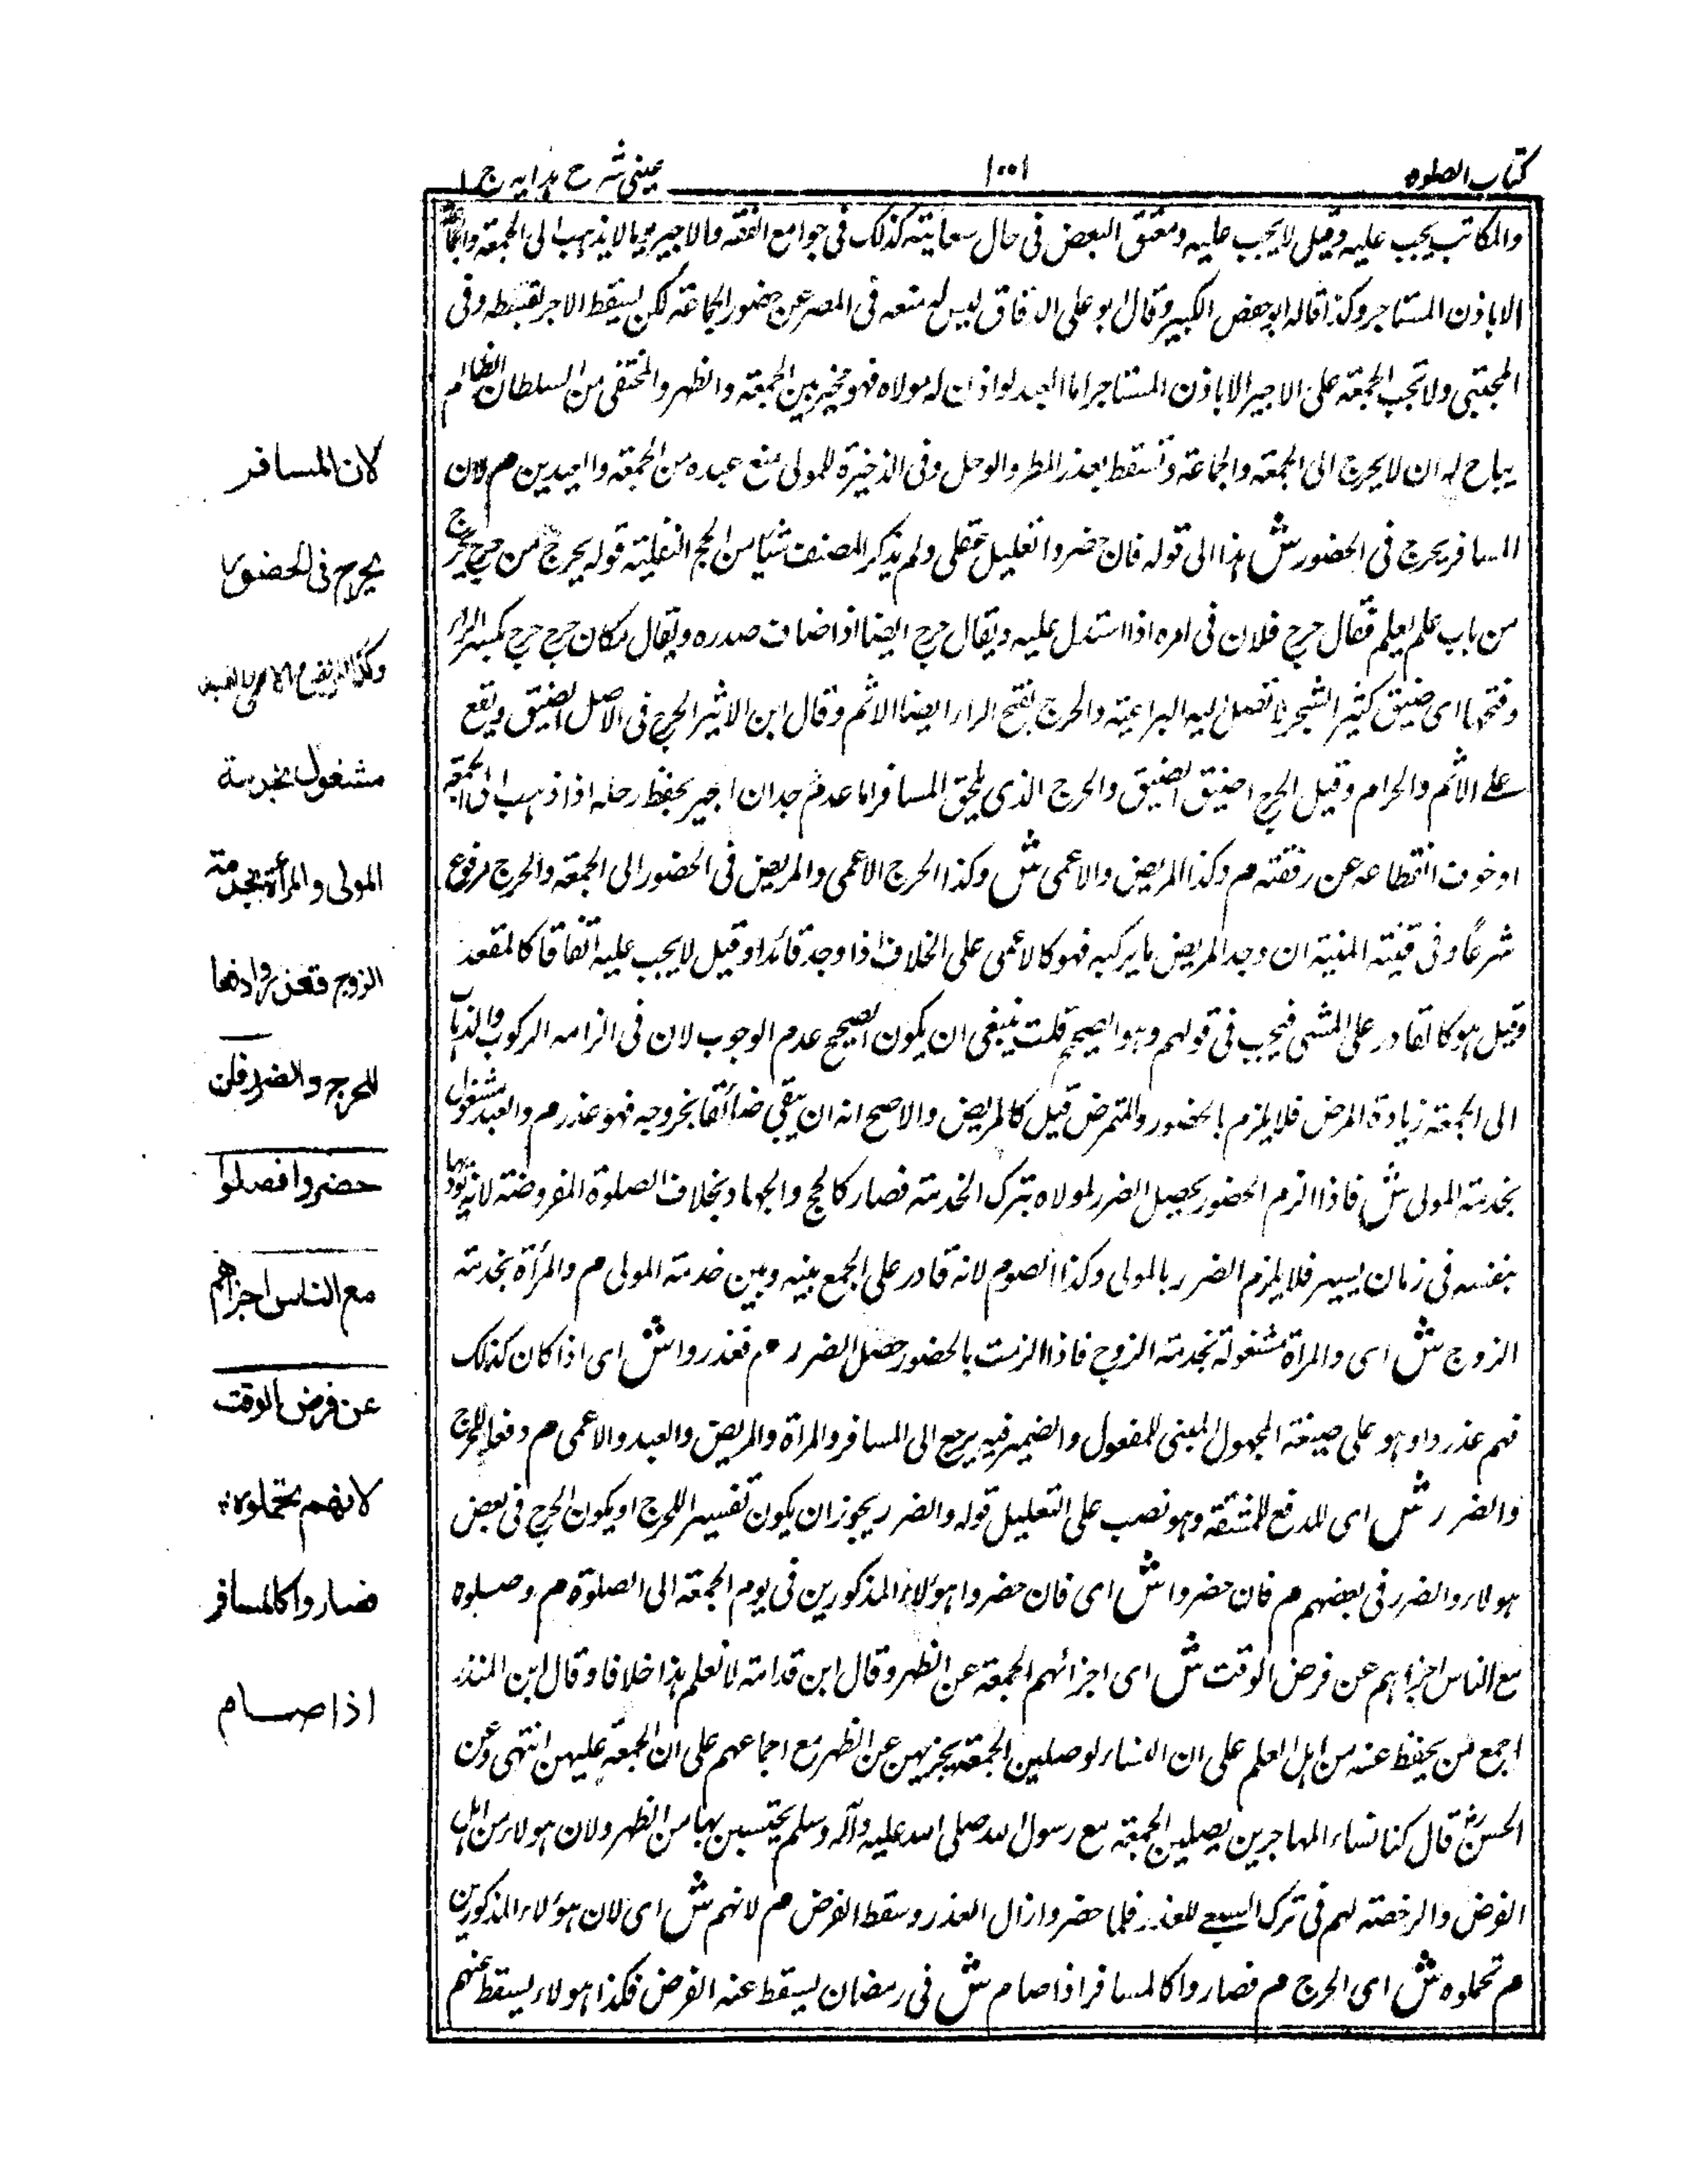 كتاب الصلوة
١٠٠١
عينى شرح هدايه ج ١
والمكاتب يجب عليه وقيل لا يجب عليه ومعتق البعض فى حال سعايته كذلك فى جوامع الفقه والاجير لا يذهب الى الجمعة والجماعة
الا باذن المستاجر وكذا قاله ابو حفص الكبير وقال ابو على الدقاق ليس له منعه فى المصر عن حضور الجماعة لكن يسقط الاجر بقسطه وفى
المجتبى ولا تجب الجمعة على الاجير الا باذن المستاجر اما العبد لو اذن له مولاه فهو مخير بين الجمعة والظهر والمختفى من السلطان الظالم
يباح له ان لا يخرج الى الجمعة والجماعة وتسقط بعذر المطر والوحل وفى الذخيرة للمولى منع عبده من الجمعة والعيدين م لان
المسافر يحرج فى الحضور ش هذا الى قوله فان حضروا تعليل عقلى ولم يذكر المصنف شيئا من الحجج النقلية قوله يحرج من حرج يحرج
من باب علم يعلم فقال حرج فلان فى امره اذا استدل عليه ويقال حرج ايضا اذا ضاق صدره ويقال مكان حرج حرج بكسر الراء
وفتحها اى ضيق كثير الشجر لا تصل اليه الراعية والحرج بفتح الراء ايضا الاثم وقال ابن الاثير الحرج فى الاصل الضيق ويقع
على الاثم والحرام وقيل الحرج اضيق الضيق والحرج الذى يلحق المسافر اما عدم وجدان اجير يحفظ رحله اذا ذهب الى الجمعة
او خوف انقطاعه عن رفقته م وكذا المريض والاعمى ش وكذا الحرج الاعمى والمريض فى الحضور الى الجمعة والحرج مرفوع
شرعًا وفى قنية المنية ان وجد المريض ما يركبه فهو كالاعمى على الخلاف اذا وجد قائدا وقيل لا يجب عليه اتفاقا كالمقعد
وقيل هو كالقادر على المشى فيجب فى قولهم وهو الصحيح قلت ينبغى ان يكون الصحيح عدم الوجوب لان فى الزامه الركوب والذهاب
الى الجمعة زيادة المرض فلا يلزم بالحضور والممرض قيل كالمريض والاصح انه ان يبقى ضائعا بخروجه فهو عذر م والعبد مشغول
بخدمة المولى ش فاذا الزم الحضور يحصل الضرر لمولاه بترك الخدمة فصار كالحج والجهاد بخلاف الصلوة المفروضة لانه يوديها
بنفسه فى زمان يسير فلا يلزم الضرر بالمولى وكذا الصوم لانه قادر على الجمع بينه وبين خدمة المولى م والمرأة بخدمة
الزوج ش اى والمرأة مشغولة بخدمة الزوج فاذا الزمت بالحضور حصل الضرر م فعذروا ش اى اذا كان كذلك
فهم عذروا وهو على صيغة المجهول المبنى للمفعول والضمير فيه يرجع الى المسافر والمرأة والمريض والعبد والاعمى م دفعا للحرج
والضرر ش اى للدفع للمشقة وهو نصب على التعليل قوله والضرر يجوز ان يكون تفسيرا للحرج او يكون الحرج فى بعض
هولاء والضرر فى بعضهم م فان حضروا ش اى فان حضروا هؤلاء المذكورين فى يوم الجمعة الى الصلوة م وصلوه
مع الناس اجزاهم عن فرض الوقت ش اى اجزائهم الجمعة عن الظهر وقال ابن قدامة لا نعلم هذا خلافا وقال ابن المنذر
اجمع من يحفظ عنه من اهل العلم على ان النساء لو صلين الجمعة يجزيهن عن الظهر مع اجماعهم على ان الجمعة عليهن انتهى وعن
الحسن رض قال كنا نساء المهاجرين يصلين الجمعة مع رسول الله صلى الله عليه وآله وسلم يحتسبن بها من الظهر ولان هولاء من اهل
الفرض والرخصة لهم فى ترك السعى للعذر فلما حضروا زال العذر وسقط الفرض م لانهم ش اى لان هؤلاء المذكورين
م تحملوه ش اى الحرج م فصاروا كالمسافر اذا صام ش فى رمضان يسقط عنه الفرض فكذا هولاء يسقط عنهم
لان المسافر
يحرج فى الحضور
وكذا المريض والاعمى والعبد
مشغول بخدمة
المولى والمرأة بخدمة
الزوج فعذروا دفعا
للحرج والضرر فان
حضروا فصلوا
مع الناس اجزاهم
عن فرض الوقت
لانهم تحملوه
فصاروا كالمسافر
اذا صام